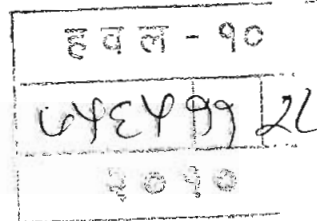 हवल - १०
७५६५ ११ २८
२०१०